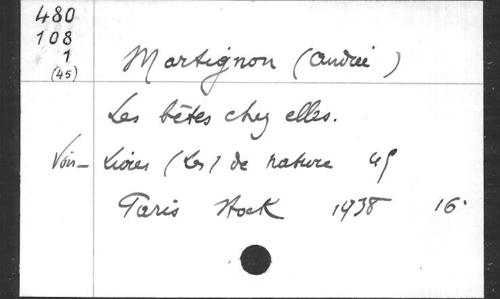 480
108
1
(45)
Martignon (Andrée)
Les bêtes chez elles.
Voir - Livres (Les) de nature 45
Paris Stock 1938 16°